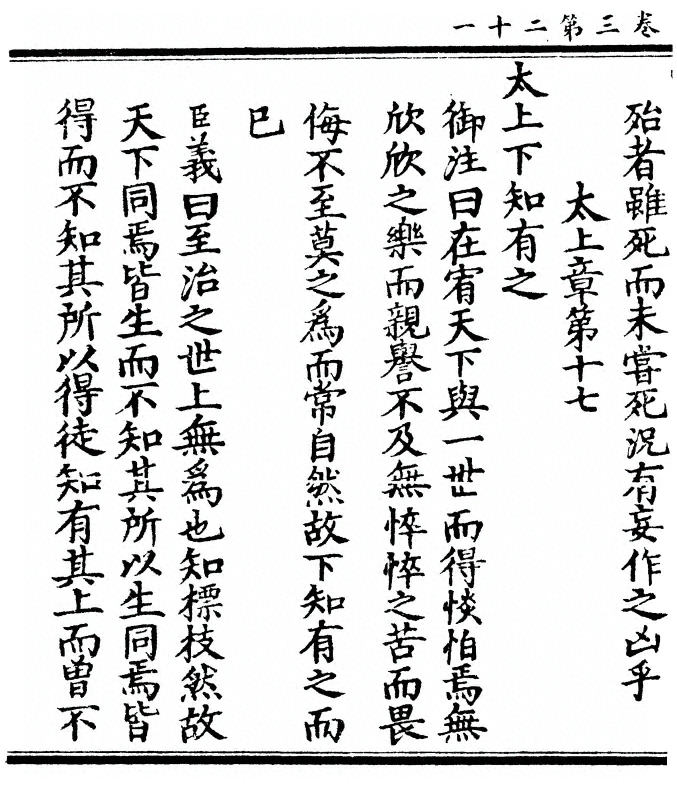 卷三第二十一
殆者雖死而未嘗死況有妄作之凶乎
太上章第十七
太上下知有之
御注曰在宥天下與一世而得惔怕焉無
欣欣之樂而親譽不及無悴悴之苦而畏
侮不至莫之爲而常自然故下知有之而
巳
臣義曰至治之世上無爲也知標枝然故
天下同焉皆生而不知其所以生同焉皆
得而不知其所以得徒知有其上而曾不